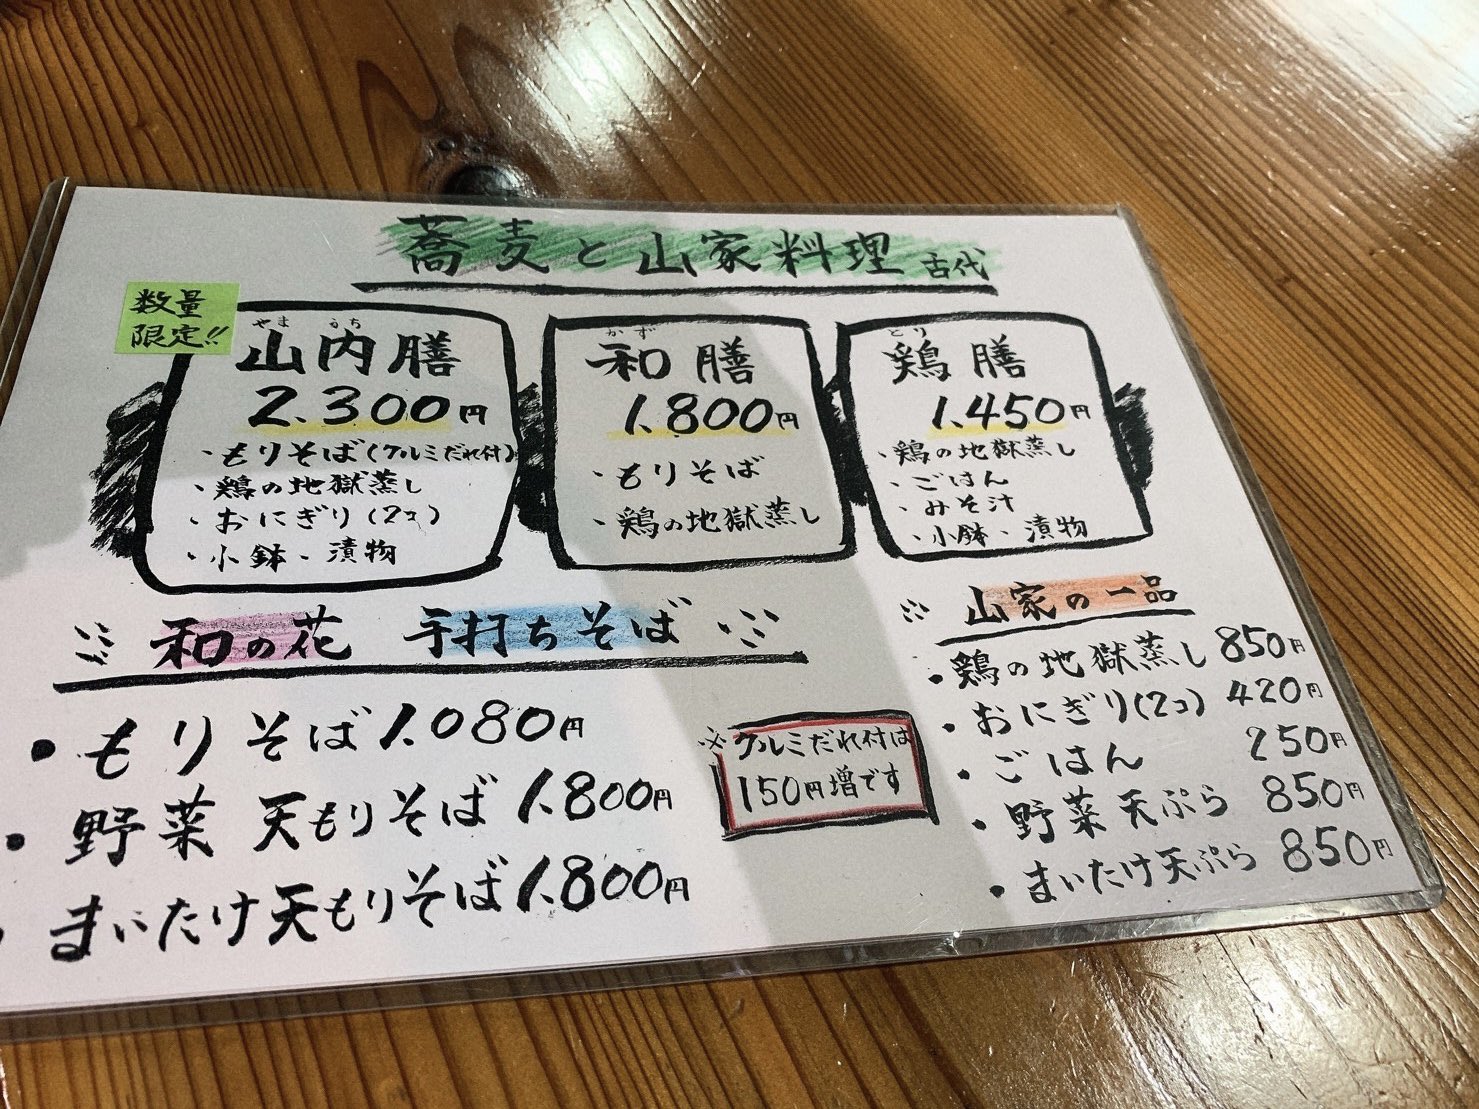 蕎麦と山家料理 古代
数量
限定!!
やま うち
山内膳
2.300円
・もりそば(クルミだれ付)
・鶏の地獄蒸し
・おにぎり(2コ)
・小鉢・漬物
かず
和膳
1.800円
・もりそば
・鶏の地獄蒸し
とり
鶏膳
1.450円
・鶏の地獄蒸し
・ごはん
・みそ汁
・小鉢・漬物
和の花 手打ちそば
・もりそば 1.080円
・野菜天もりそば 1.800円
・まいたけ天もりそば 1.800円
※クルミだれ付は
150円増です
山家の一品
・鶏の地獄蒸し 850円
・おにぎり(2コ) 420円
・ごはん 250円
・野菜天ぷら 850円
・まいたけ天ぷら 850円